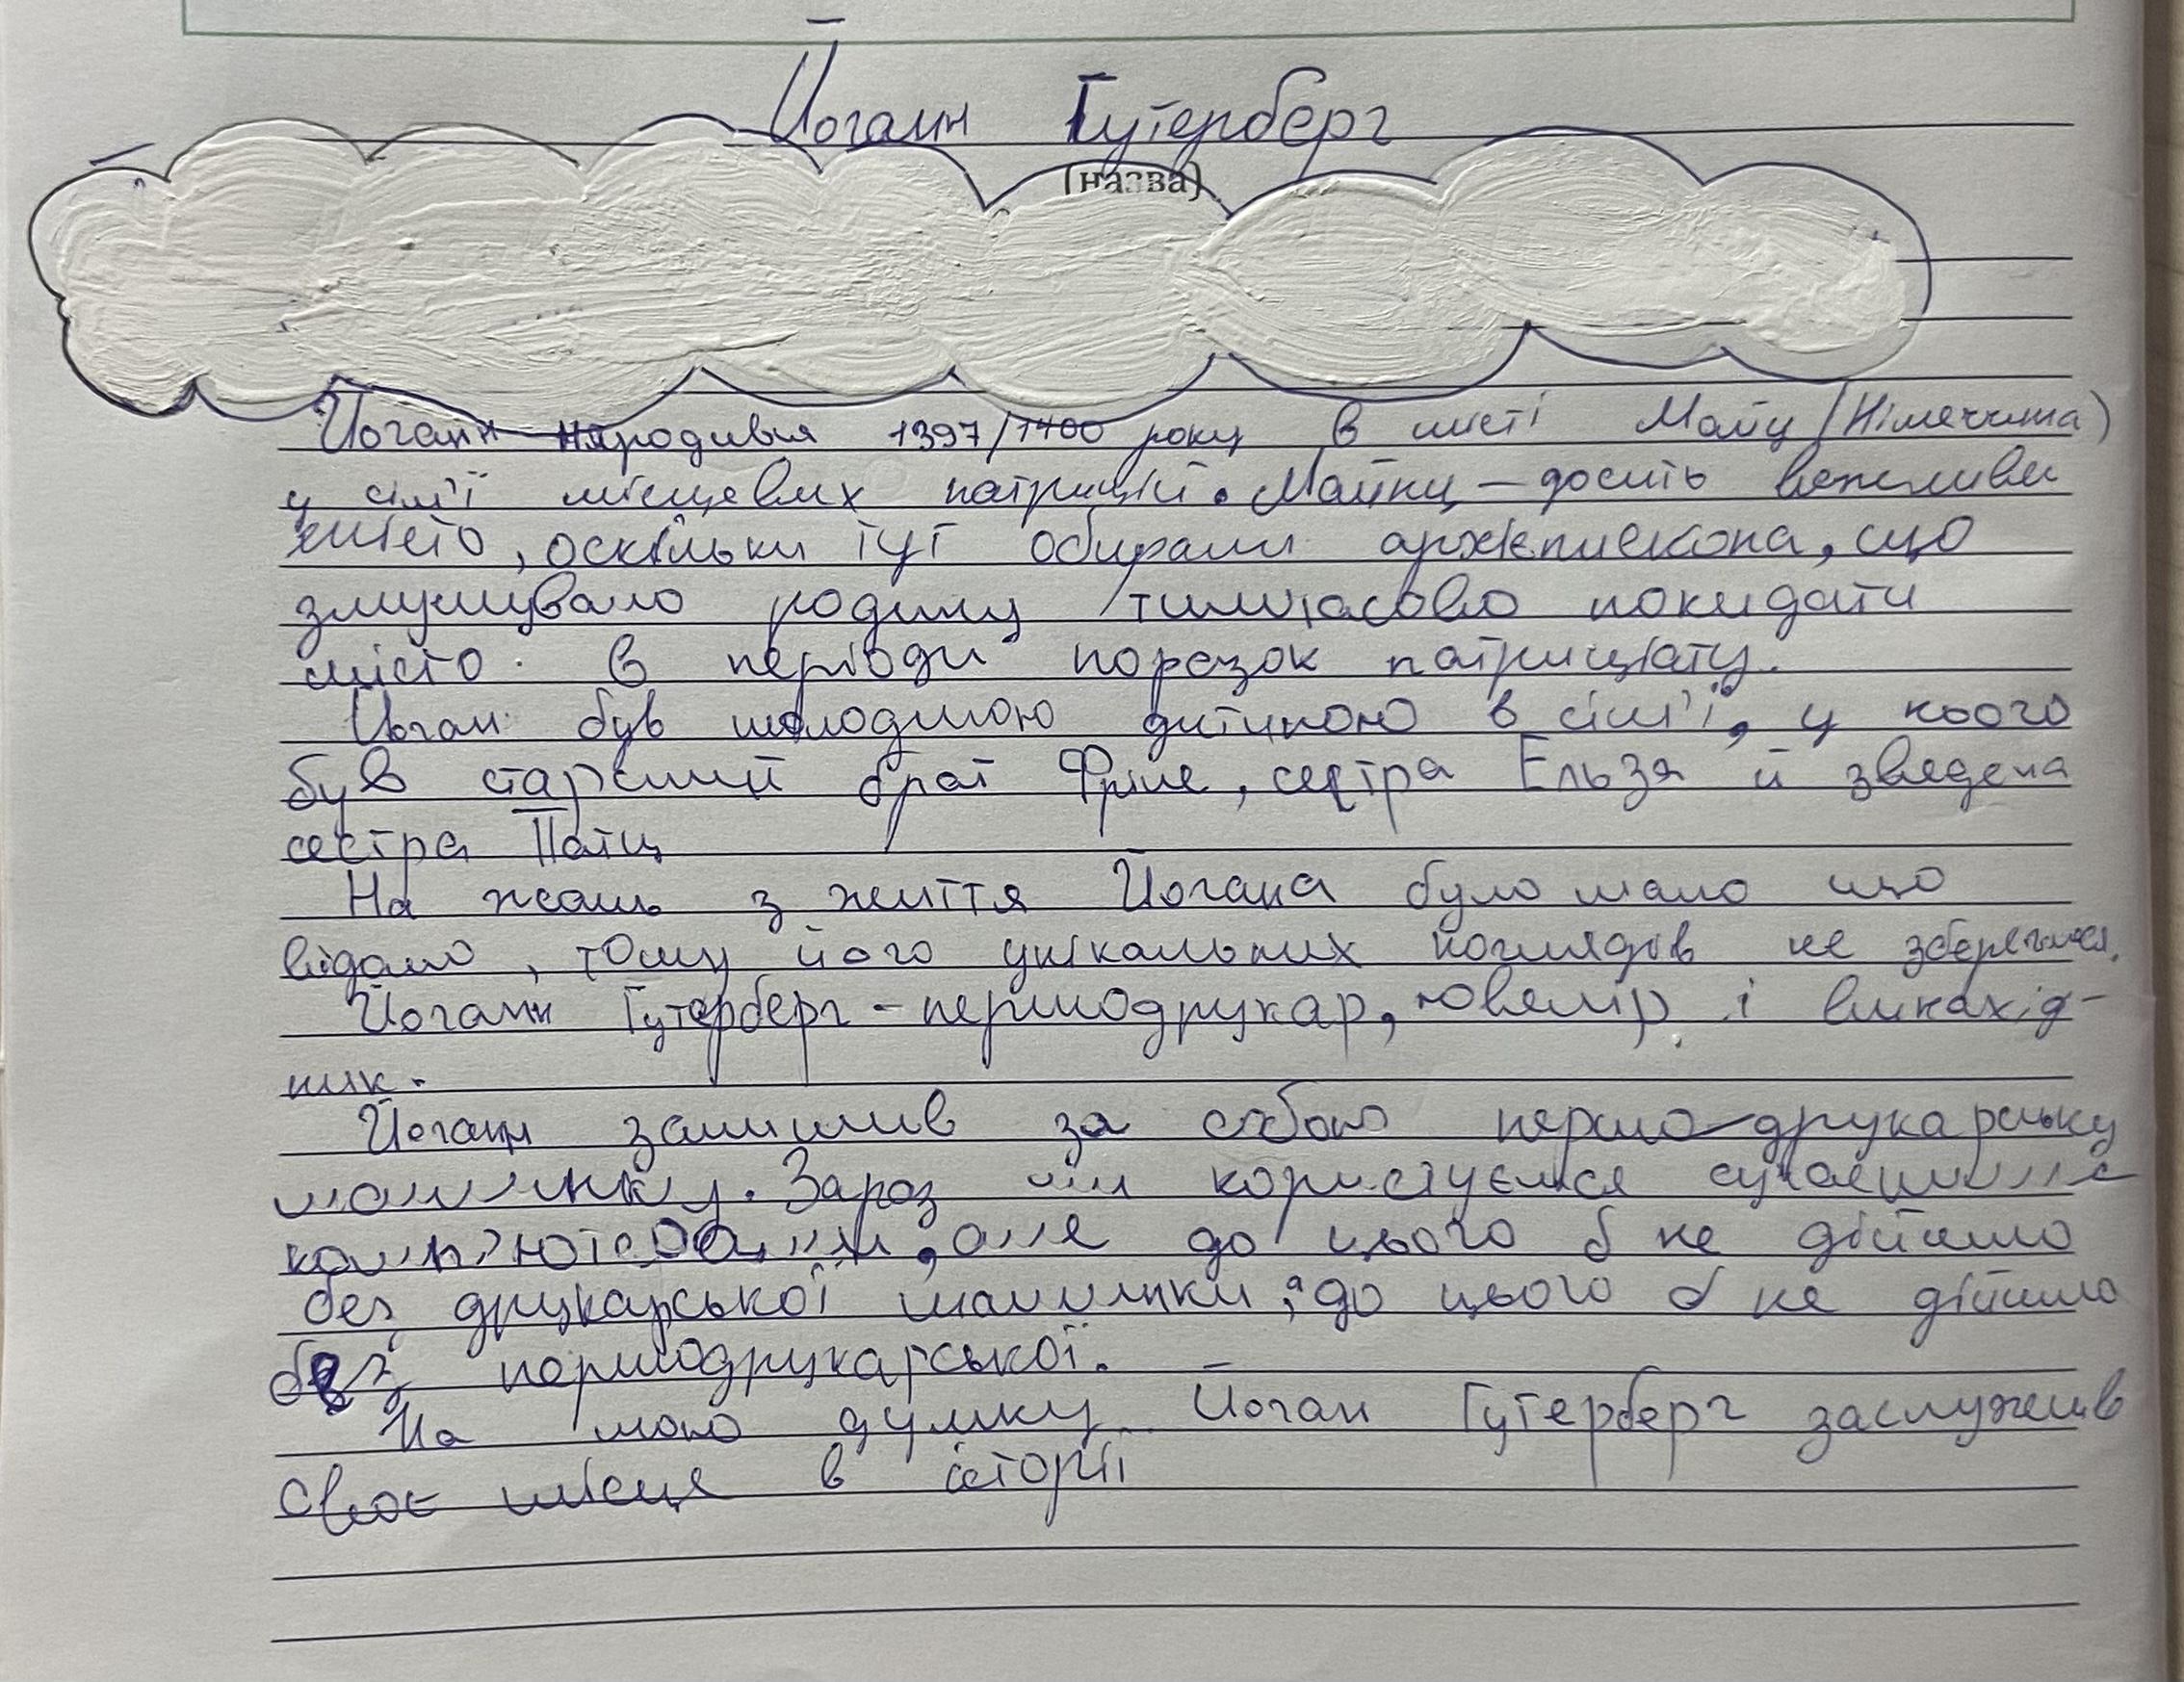 Йоганн Гутерберг
(назва)
Йоганн народився 1397/1400 року в місті Майц (Німеччина)
у сім'ї місцевих патрицій. Майнц – досить важливе
місто, оскільки тут обирали архієпископа, що
змушувало родину тимчасово покидати
місто в періоди поразок патриціату.
Йоган був молодшою дитиною в сім'ї, у нього
був старший брат Фріле, сестра Ельза й зведена
сестра Патц
На жаль з життя Йогана було мало що
відомо, тому його унікальних поглядів не збереглося.
Йоганн Гутерберг – першодрукар, ювелір і винахід-
ник.
Йоганн залишив за собою першодрукарську
машинку. Зараз ми користуємся сучасними
комп'ютерами, але до цього б не дійшло
без друкарської машинки, а до цього б не дійшло
без першодрукарської.
На мою думку Йоган Гутерберг заслужив
своє місце в історії